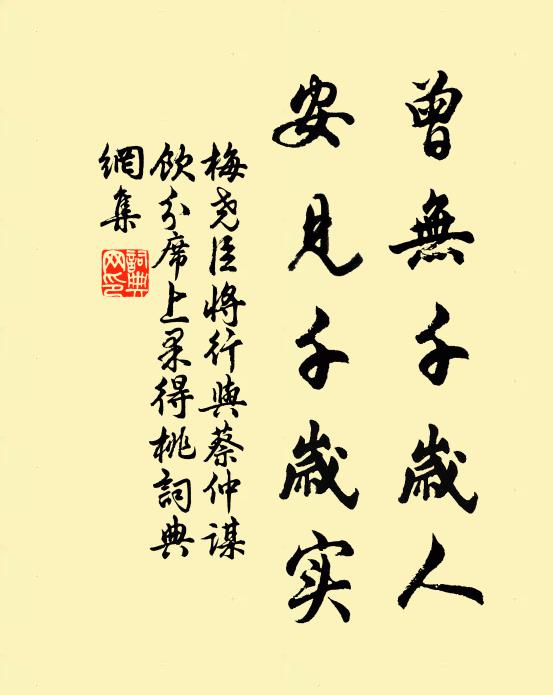 曾無千歲人
安見千歲实
梅尧臣将行與蔡仲謀
飲分席上果得桃詞典
網集
詞典
网印